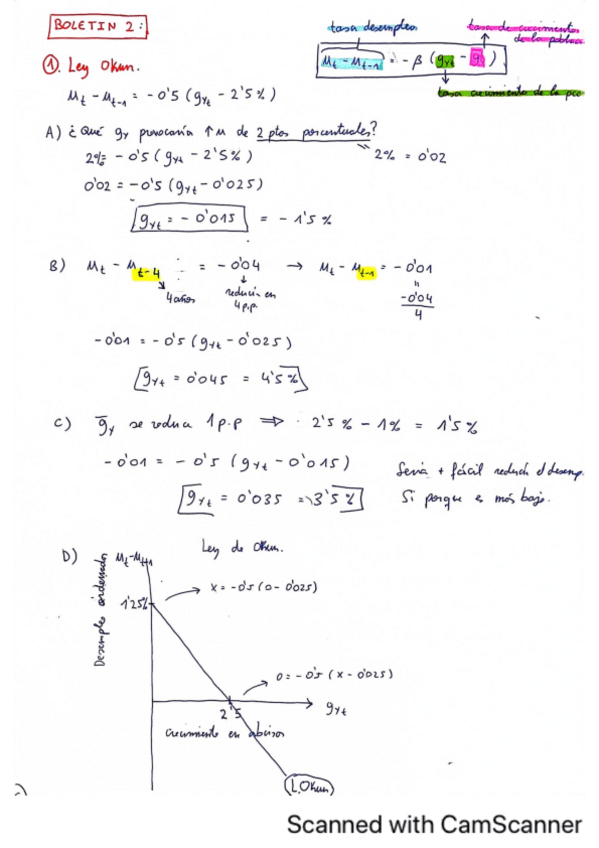 BOLETIN 2:
tasa desempleo
tasa de crecimiento de la
① Ley Okun.
μt - μt-1 = - β (gyt - ḡ)
tasa crecimiento de la
μt - μt-1 = -0'5 (gyt - 2'5%)
A) ¿Qué gy provocaría ↑μ de 2 ptos porcentuales?
2% = -0'5 (gyt - 2'5%)
2% = 0'02
0'02 = -0'5 (gyt - 0'025)
gyt = -0'015 = -1'5%
B) μt - μt-4 = -0'04 → μt - μt-1 = -0'01
4 años
reducir en 4 p.p.
= -0'04/4
-0'01 = -0'5 (gyt - 0'025)
gyt = 0'045 = 4'5%
C) ḡy se reduce 1 p.p ⇒ 2'5% - 1% = 1'5%
-0'01 = -0'5 (gyt - 0'015)
Sería + fácil reducir el desemp.
gyt = 0'035 = 3'5%
Si porque es más bajo.
D)
Ley de Okun.
μt - μt+1
Desempleo
1'25%
x = -0'5 (0 - 0'025)
0 = -0'5 (x - 0'025)
2'5
gyt
Crecimiento en
L.Okun
Scanned with CamScanner